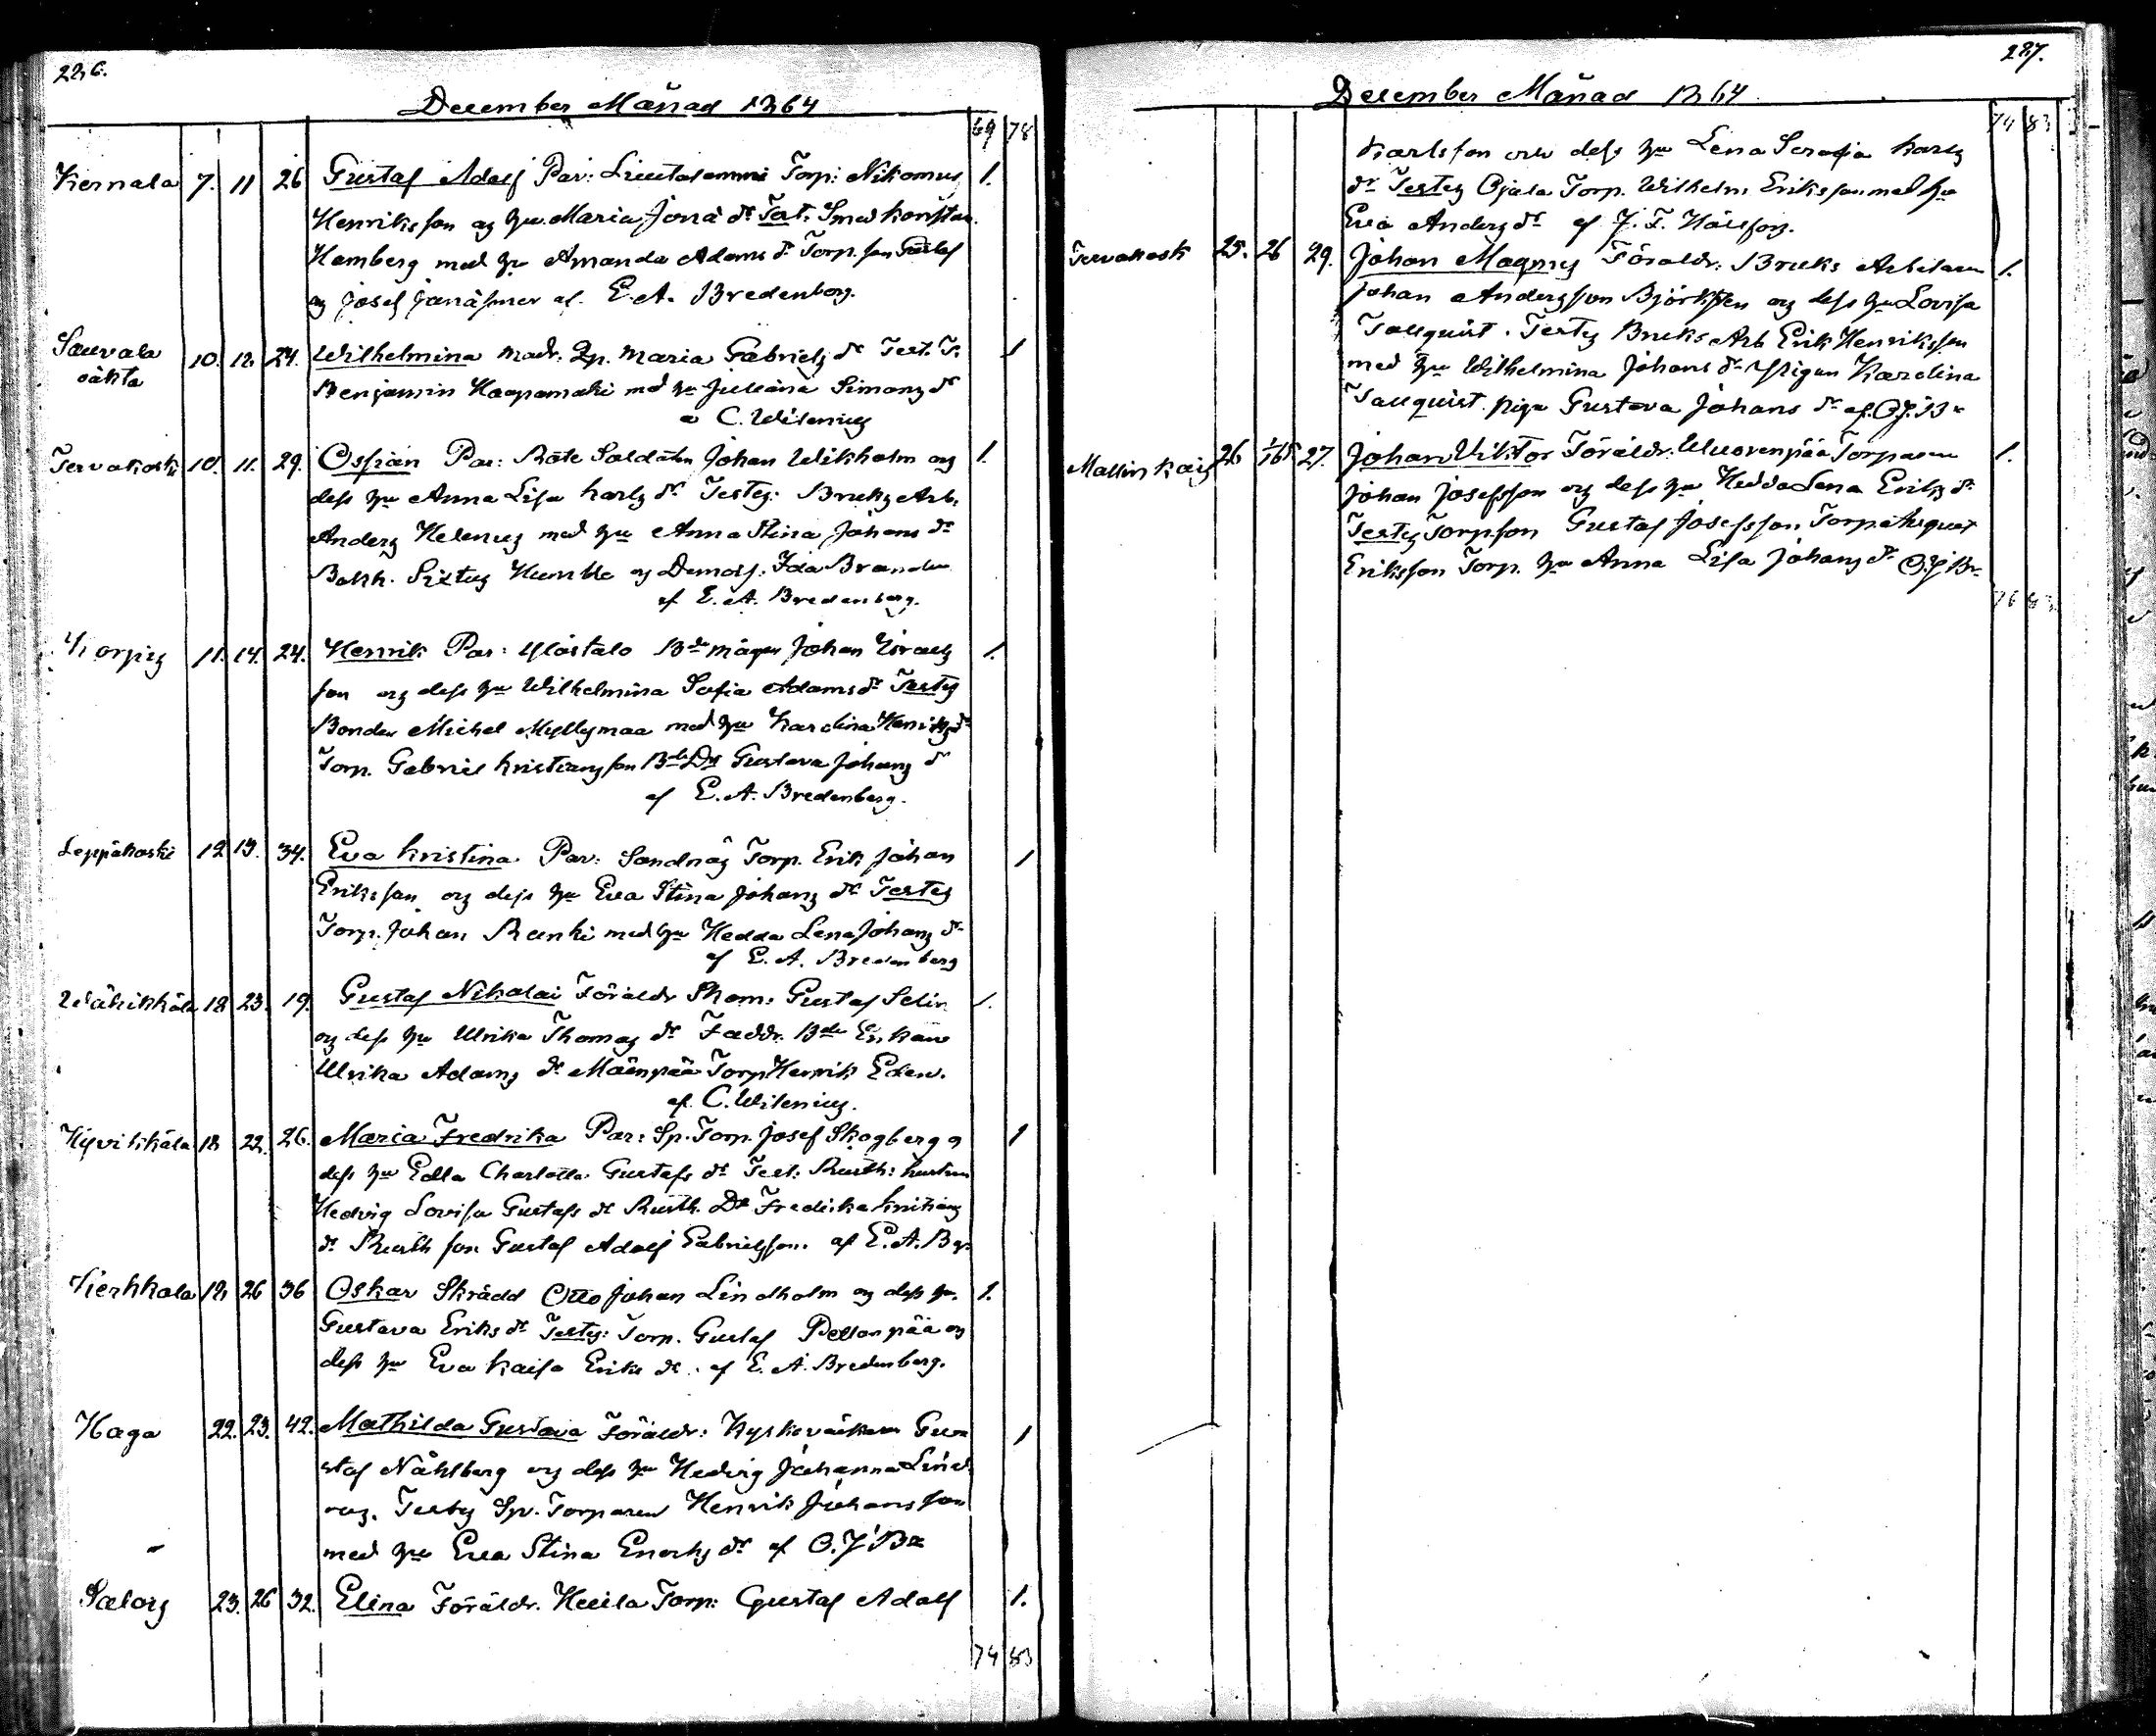 226.
December Månad 1864
69 78
Kernala 7. 11 26 Gustaf Adolf Par: Torp: Nikomus 1.
Henriksson og hu. Maria Jona dr Test. Smed Konstan
Hamberg med hu Amanda Adams dr Torp. son Gustaf
og Josef af. E. A. Bredenberg.
Sauvala
sähta
10. 12. 24. Wilhelmina modr. Qp. Maria Gabriels dr Test. T. 1
Benjamin Haapamäki med hu Juliana Simons dr
a C. Wilenius
Tervakoski 10. 11. 29. Ossian Par: Rote Soldaten Johan Wikholm og 1.
dess hu Anna Lisa Karls dr Testes: Bruks Arb.
Anders Helenius med hu Anna Stina Johans dr
Bokh. Sixtus Humble og Demois: Ida Brander
af E. A. Bredenberg.
Korpis 11. 14. 24. Henrik Par: Ylöstalo Bde mågen Johan Israels 1.
son og dess hu Wilhelmina Sofia Adams dr Testes
Bonden Michel Myllymaa med hu Karolina Henriks dr
Torp. Gabriel Kristiansson Bde Dr Gustava Johans dr
af E. A. Bredenberg.
Leppäkoski 12 13. 34. Eva Kristina. Par: Sandnäs Torp. Erik Johan 1
Eriksson og dess hu Eva Stina Johans dr Testes
Torp. Johan Ranki med hu Hedda Lena Johans dr
af E. A. Bredenberg
Wähikkälä 18 23. 19. Gustaf Nikolai Föräldr Skom: Gustaf Selin 1.
og dess hu Ulrika Thomas dr Faddr. Bde Enkan
Ulrika Adams dr Mäenpää Torp Henrik Eden.
af. C. Wilenius.
Hyvikkälä 18 22. 26. Maria Fredrika Par: Sp. Torp. Josef Skogberg o 1
dess hu Edla Charlotta Gustafs dr Test: Rusth: hustrun
Hedvig Lovisa Gustafs dr Rusth. Dr Fredrika Kristians
dr Rusth son Gustaf Adolf Gabrielsson. af E. A. Bg.
Kerkkola 18 26 36 Oskar Skrädd Otto Johan Lindholm og dess hu. 1.
Gustava Eriks dr Testes: Torp. Gustaf Pellonpää og
dess hu Eva Kaisa Eriks dr. af E. A. Bredenberg.
Haga 22. 23. 42. Mathilda Gustava Föräldr: Kyrkoväktaren Gu= 1
staf Nåhlberg og dess hu Hedvig Johanna Lind
Testes Sp. Torparen Henrik Johansson
med hu Eva Stina Enochs dr af O. J. Br
Salois 23. 26 32. Elina Föräldr. Heiila Torp: Gustaf Adolf 1.
74 83
227.
December Månad 1864
74 83
Karlsson och dess hu Lena Serafia Karls
dr Testes Ojala Torp. Wilhelm Eriksson med hu
Eva Anders dr af J. F.
Tervakosk 25. 26 29. Johan Magnus Föräldr: Bruks Arbetaren 1.
Johan Andersson Björksten og dess hu Lovisa
Tallquist. Testes Bruks Arb Erik Henriksson
med hu Wilhelmina Johans dr Pigan Karolina
Tallquist. piga Gustava Johans dr af. O. J. Br
Mallinkais 26 1/165 27. Johan Viktor Föräldr: Wuorenpää Torparen 1.
Johan Josefsson og dess hu Hedda Lena Eriks dr
Testes Torpson Gustaf Josefsson Torp August
Eriksson Torp. hu Anna Lisa Johans dr O. J. Br
76 83